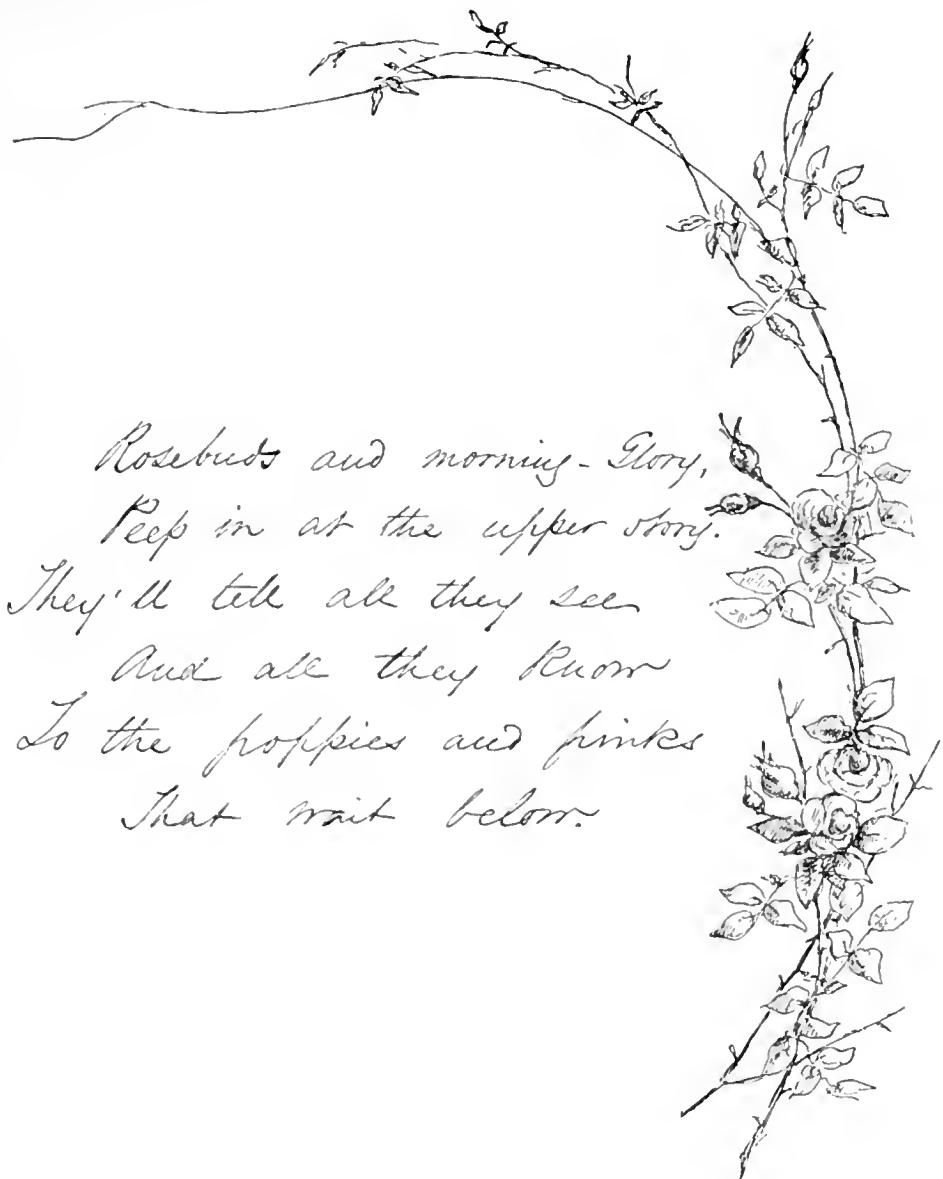 Rosebuds and morning-Glory,
Peep in at the upper story.
They'll tell all they see
And all they know
To the poppies and pinks
That wait below.